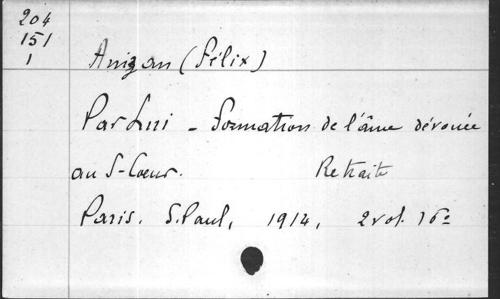 204
151
1
Anizan (Félix)
Par Lui - Formation de l'âme dévouée
au S-Coeur. Retraite
Paris. S. Paul, 1914, 2 vol. 16°